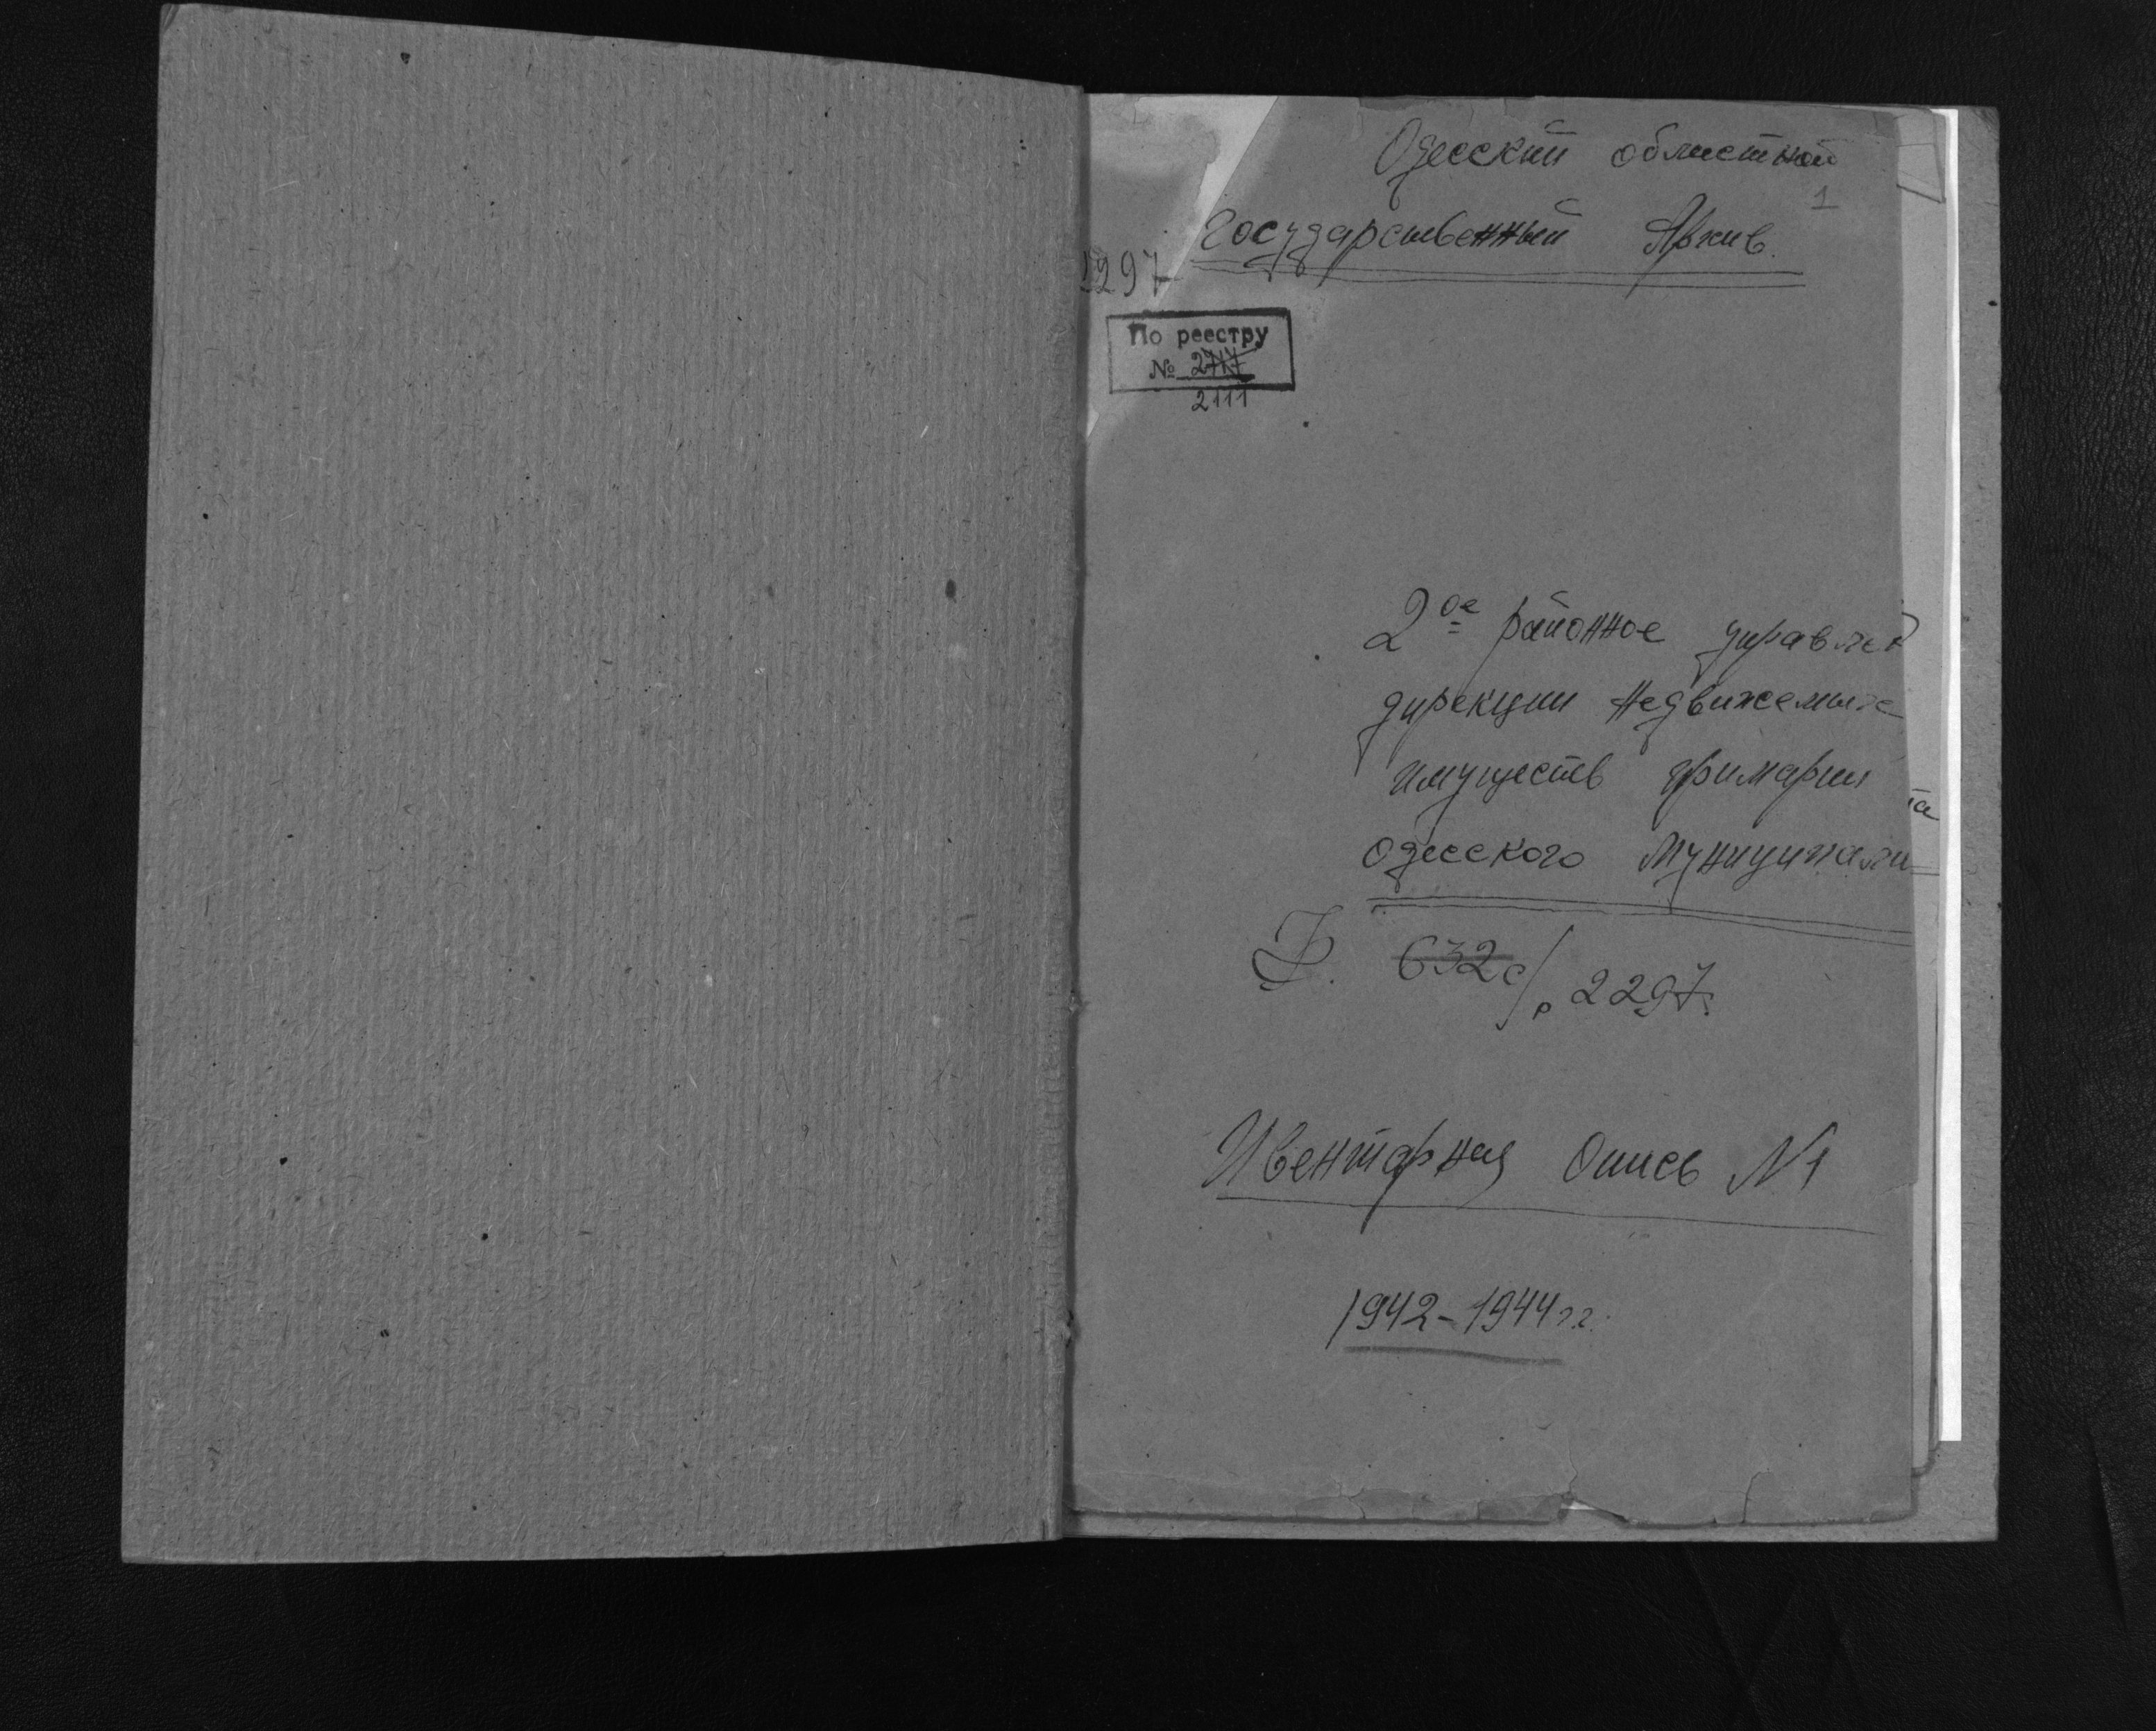 Одесский областной
1
государственный Архив.
2297
По реестру
№ 2717
2111
2ое районное управлен
дирекции недвижемых
имуществ примарии
одесского муниципали
та
Ф. 632с/р 2297.
Ивентарная Опись №1
1942-1944 г.г.